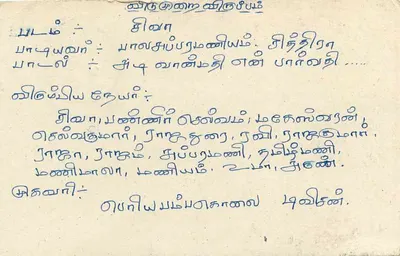 விடுமுறை விருப்பம்
படம் :- சிவா
பாடியவர் :- பாலசுப்ரமணியம். சித்திரா
பாடல் :- அடி வான்மதி என் பார்வதி .....
விரும்பிய நேயர் :-
சிவா, பன்னீர் செல்வம், மகேஸ்வரன்,
செல்வகுமார், ராஜதுரை, ரவி, ராஜகுமார்,
ராஜா, ராஜம், சுப்ரமணி, தமிழ்மணி,
மணிமாலா, மணியம். உமா, அருண்.
முகவரி :-
பெரியபம்பகொலை டிவிசன்.